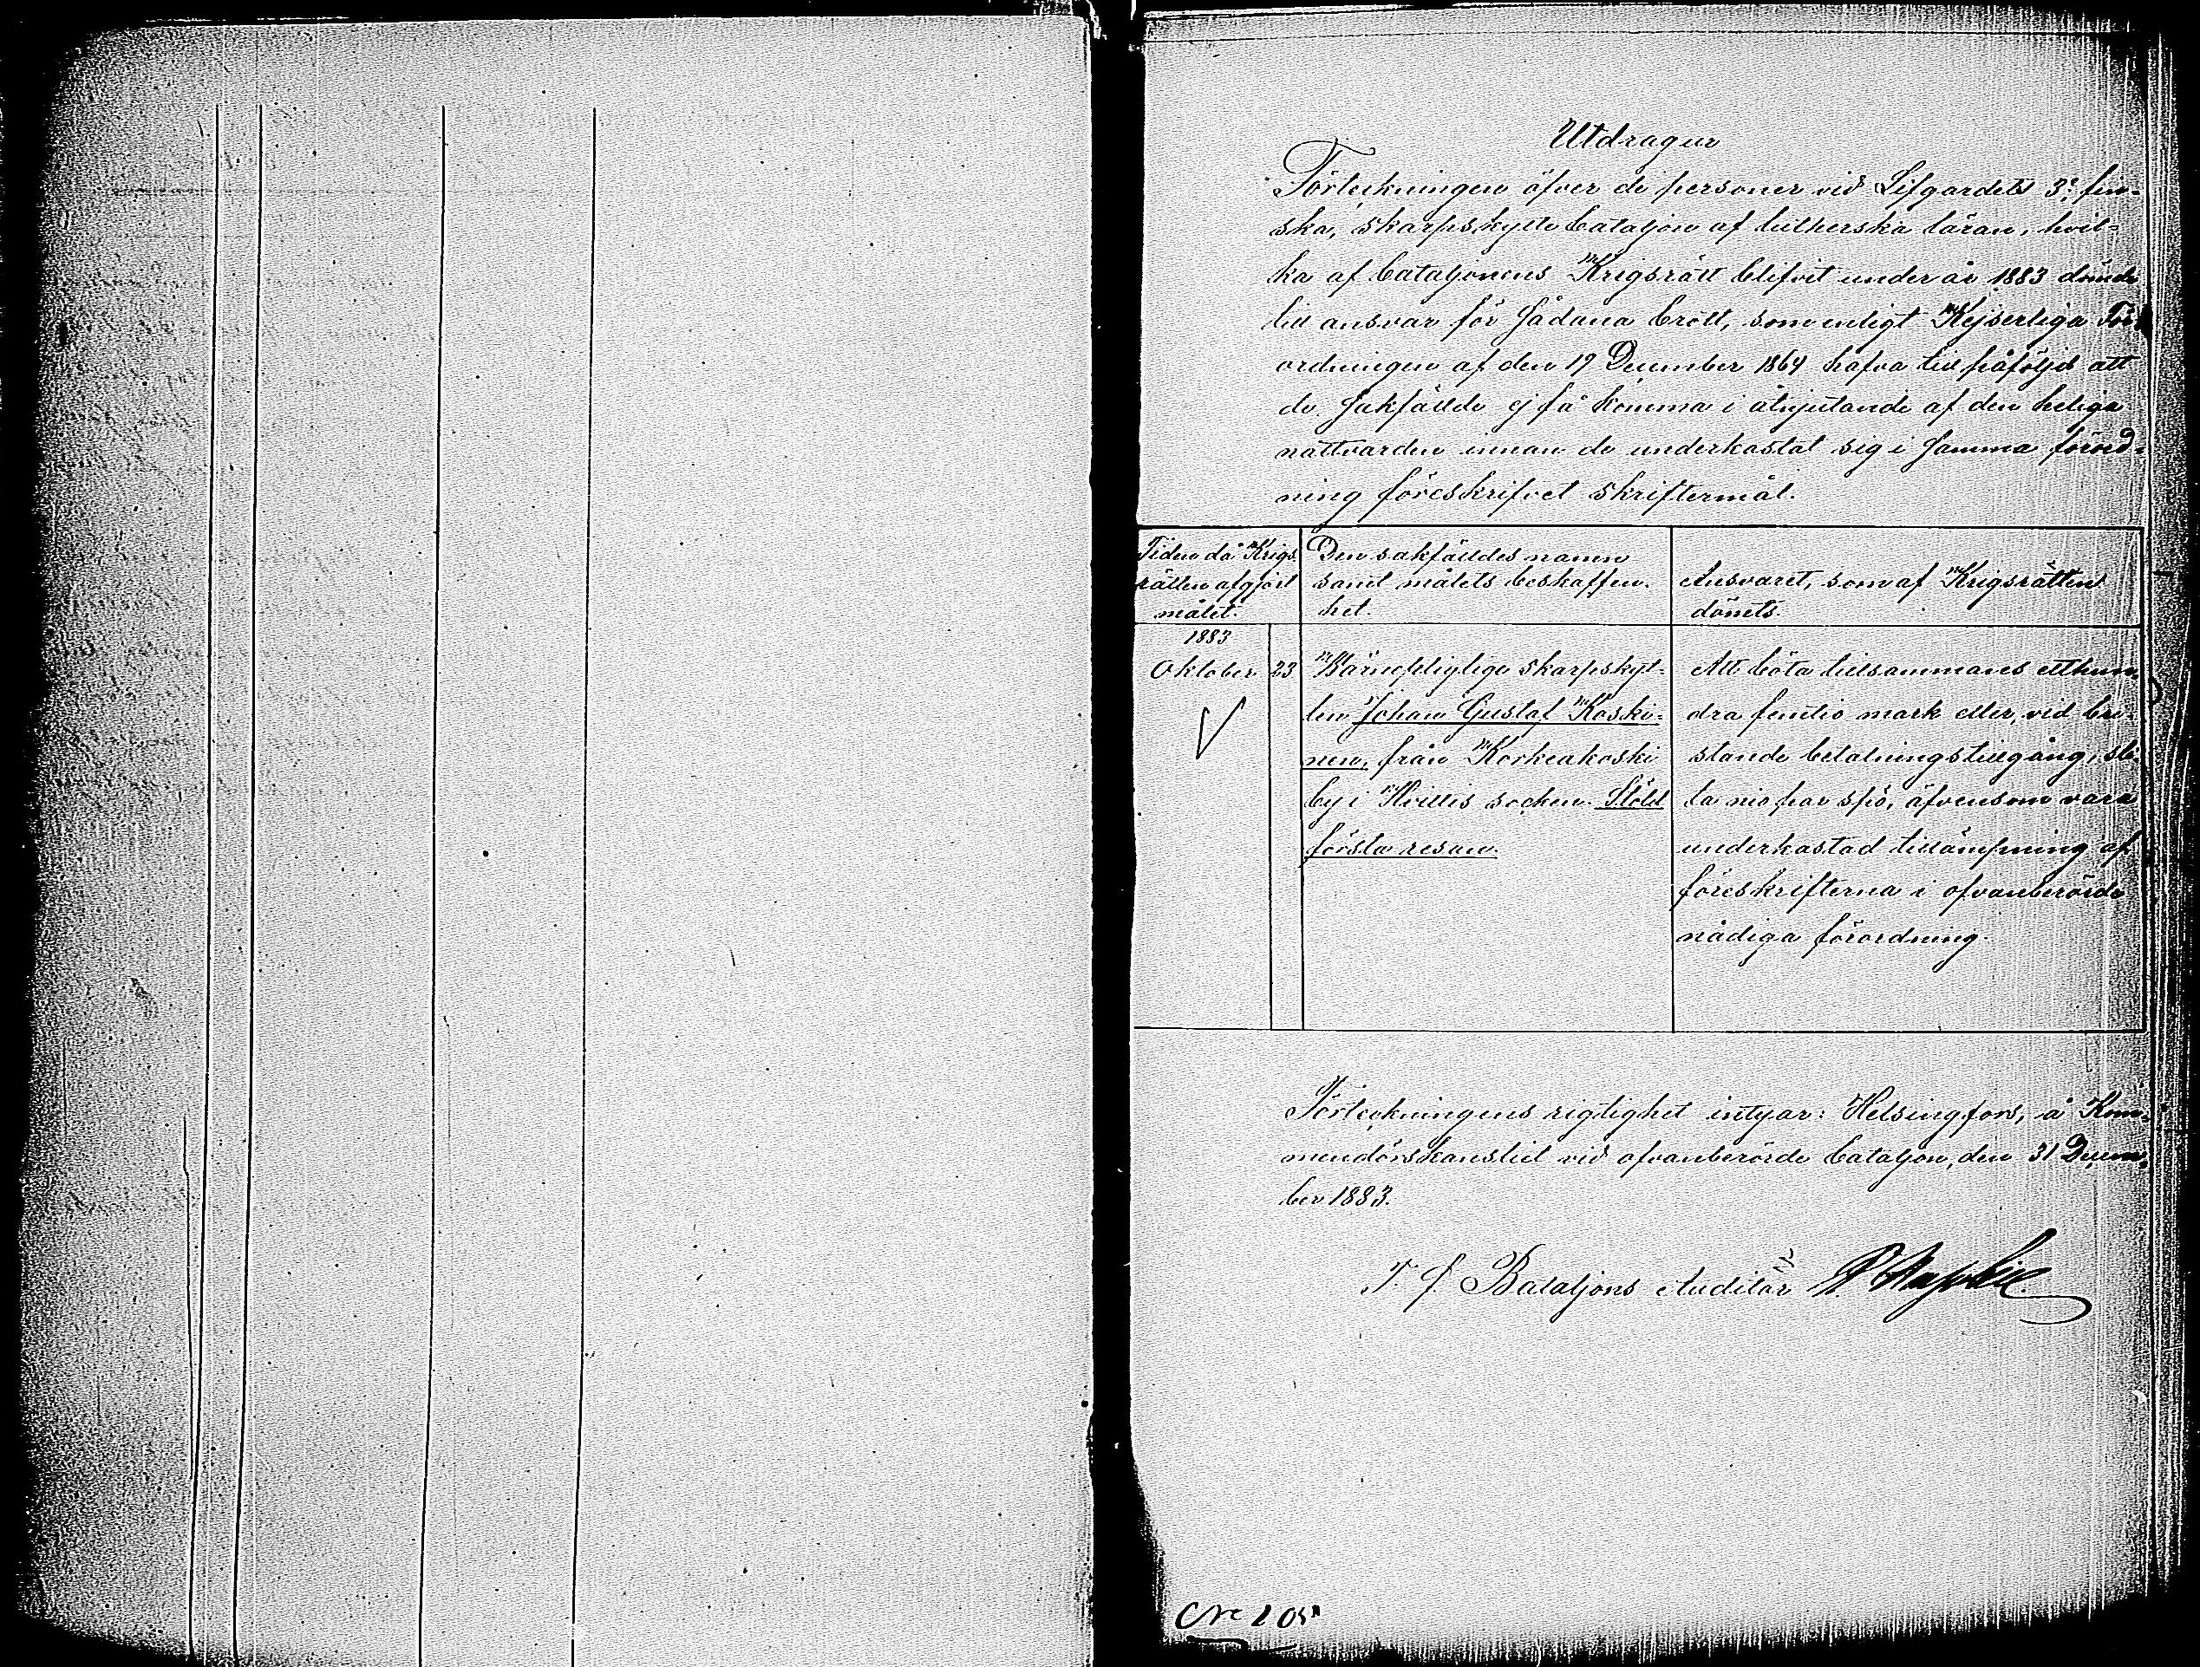 Utdrag ur
Förteckningen öfver de personer vid Lifgardets 3e fin-
ska, skarpskytte bataljon af lutherska läran, hvil-
ka af bataljonens Krigsrätt blifvit under år 1883 dömde
till ansvar för sådana brott, som enligt Kejserliga För-
ordningen af den 19 December 1864 hafva till påföljd att
de sakfällde ej få komma i åtnjutande af den heliga
nattvarden innan de underkastat sig i samma förord-
ning föreskrifvet skriftermål.
Tiden då Krigs-
rätten afgjort
målet.
Den sakfälldes namn
samt målets beskaffen-
het.
Ansvaret, som af Krigsrätten
dömts.
1883
Oktober 23
Värnepligtige skarpskyt-
ten Johan Gustaf Koski-
nen, från Korkeakoski
by i Hvittis socken. Stöld
första resan.
Att böta tillsammans etthun-
dra femtio mark eller, vid bri-
stande betalningstillgång, sli-
ta nio par spö, äfvensom vara
underkastad tillämpning af
föreskrifterna i ofvanberörde
nådiga förordning.
Förteckningens rigtighet intygar: Helsingfors, å Kom-
mendörskansliet vid ofvanberörde bataljon, den 31 Decem-
ber 1883.
T. f. Bataljons Auditör